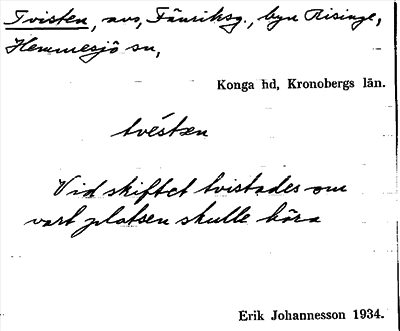 Tvisten, avs, Fänriksg., byn Risinge,
Hemmesjö sn,
Konga hd, Kronobergs län.
tvéstən
Vid skiftet tvistades om
vart platsen skulle höra
Erik Johannesson 1934.